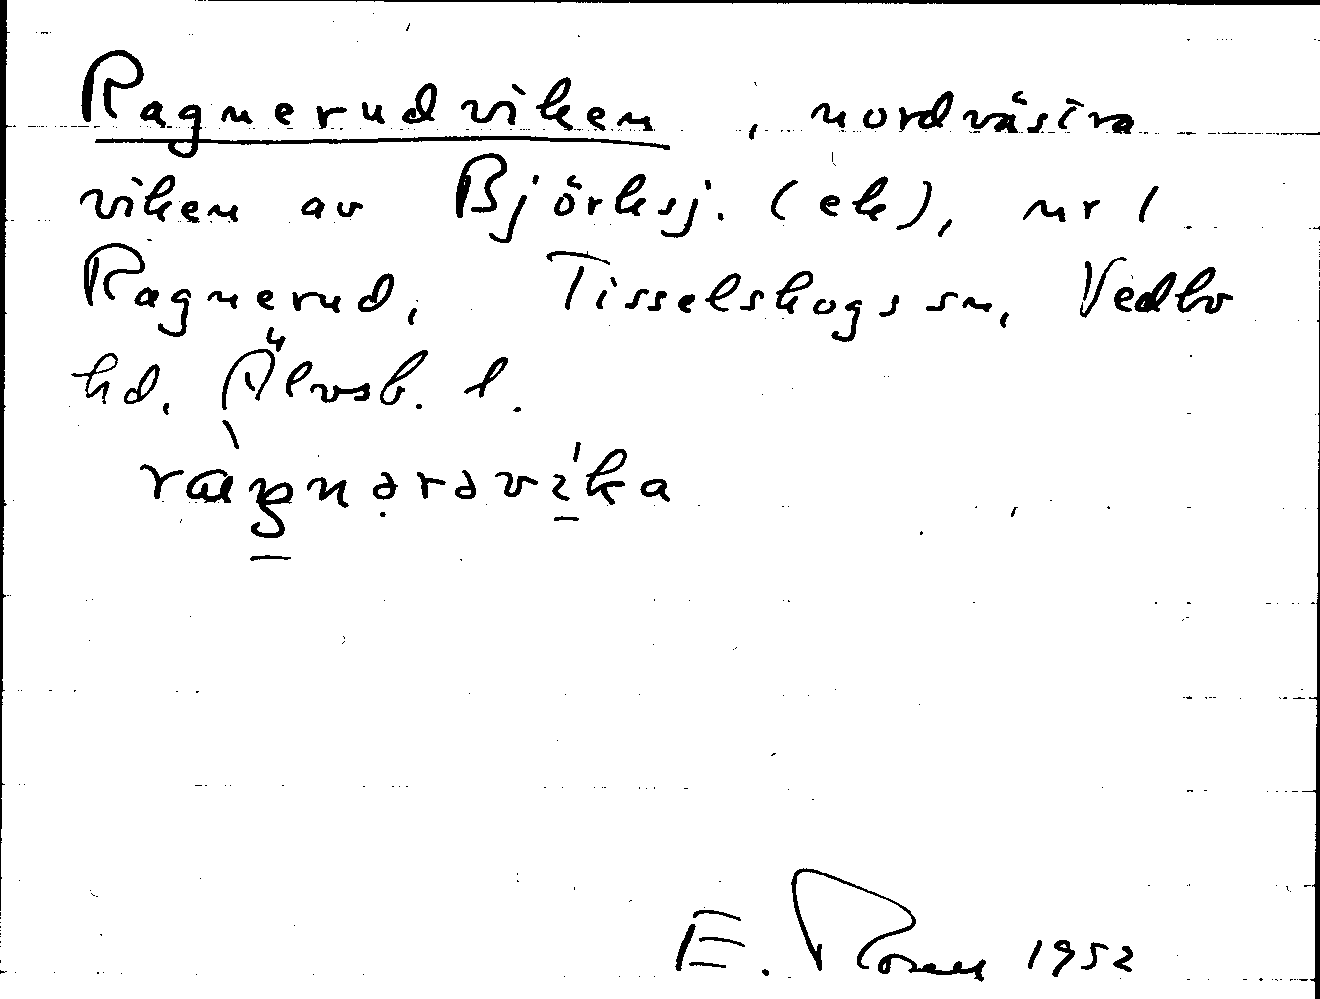 Ragnerudviken, nordvästra
viken av Björksj. (ek), nr 1
Ragnerud, Tisselskogs sn, Vedbo
hd. Älvsb. l.
E. Rosell 1952